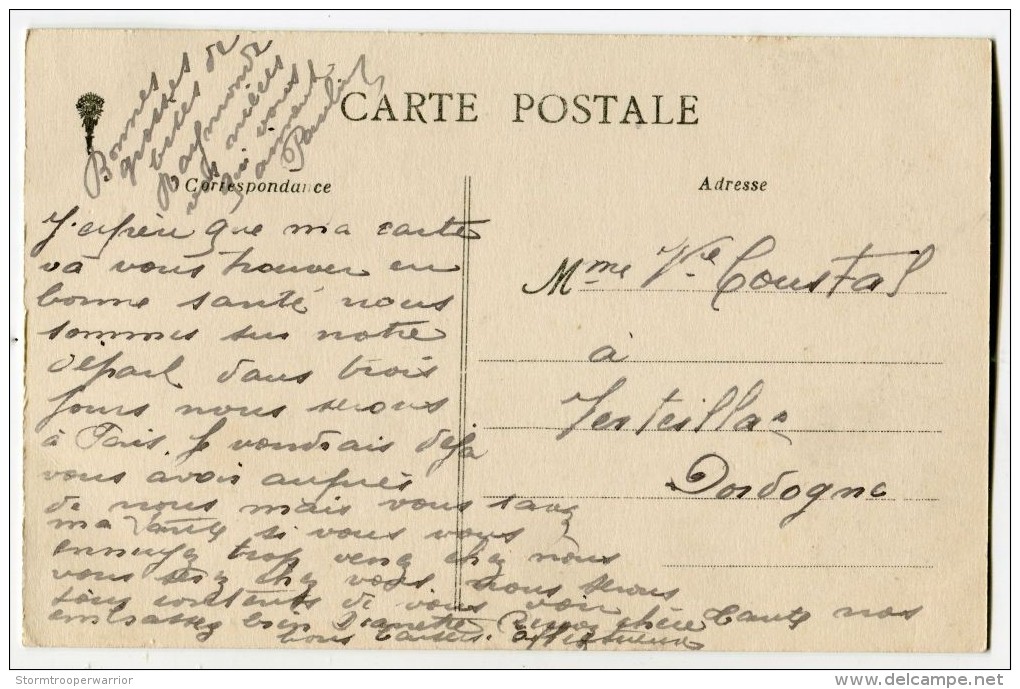 Bonnes
grosses de
bises de
Raymonde
vos nièces
qui vous
aiment
CARTE POSTALE
Correspondance
Adresse
J'espère que ma carte
va vous trouver en
bonne santé nous
sommes sur notre
départ dans trois
jours nous serons
à Paris. Je voudrais déjà
vous avoir auprès
de nous mais vous savez
ma tante si vous vous
ennuyez trop venez chez nous
vous serez chez vous nous serons
tous contents de vous voir
embrassez bien chère tante nos
bons baisers. affectueux
Mme Vve Coustal
à
Verteillac
Dordogne
Stormtrooperwarrior
delcampe.net